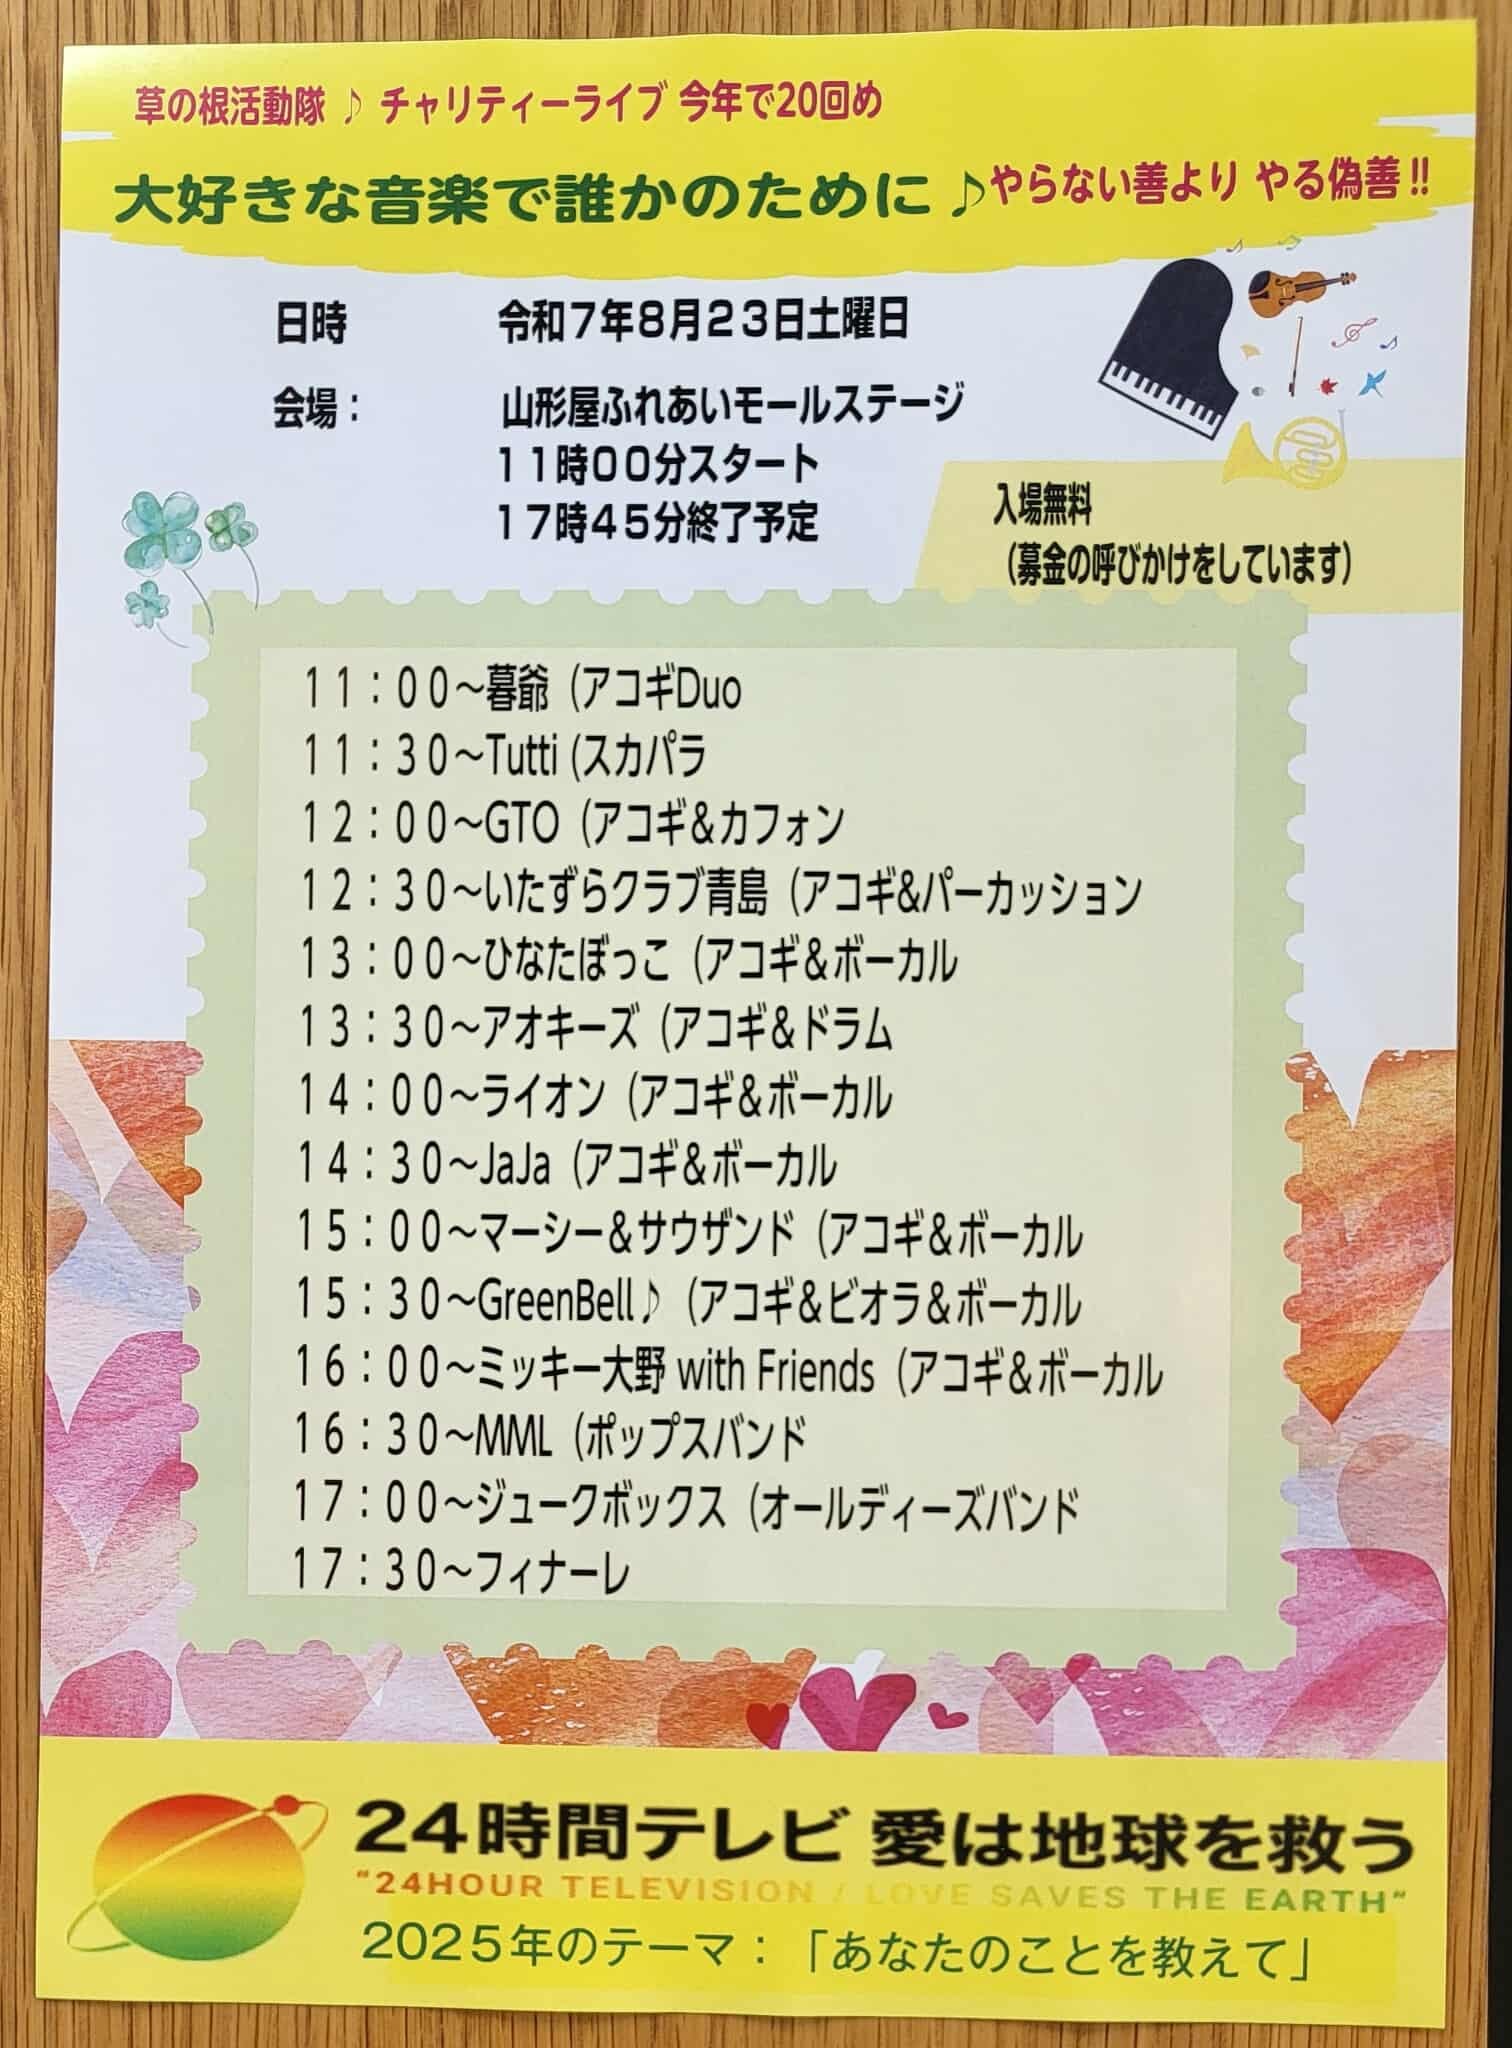 草の根活動隊 ♪ チャリティーライブ 今年で20回め
大好きな音楽で誰かのために♪やらない善より やる偽善!!
日時 令和7年8月23日土曜日
会場： 山形屋ふれあいモールステージ
11時00分スタート
17時45分終了予定
入場無料
（募金の呼びかけをしています）
11：00～暮爺（アコギDuo
11：30～Tutti (スカパラ
12：00～GTO（アコギ＆カフォン
12：30～いたずらクラブ青島（アコギ&パーカッション
13：00～ひなたぼっこ（アコギ＆ボーカル
13：30～アオキーズ（アコギ＆ドラム
14：00～ライオン（アコギ＆ボーカル
14：30～JaJa（アコギ＆ボーカル
15：00～マーシー＆サウザンド（アコギ＆ボーカル
15：30～GreenBell♪（アコギ＆ビオラ＆ボーカル
16：00～ミッキー大野 with Friends（アコギ＆ボーカル
16：30～MML（ポップスバンド
17：00～ジュークボックス（オールディーズバンド
17：30～フィナーレ
24時間テレビ 愛は地球を救う
"24HOUR TELEVISION / LOVE SAVES THE EARTH"
2025年のテーマ：「あなたのことを教えて」